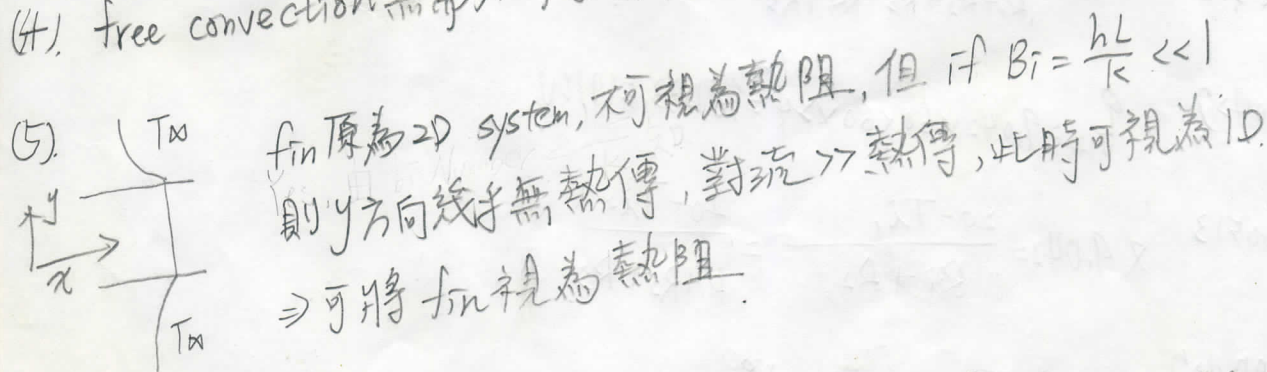 (4). free convection無
(5). fin原為2D system, 不可視為熱阻, 但 if Bi = hL/k << 1
則y方向幾乎無熱傳, 對流 >> 熱傳, 此時可視為1D.
⇒ 可將 fin視為熱阻.
T∞
y
x
T∞